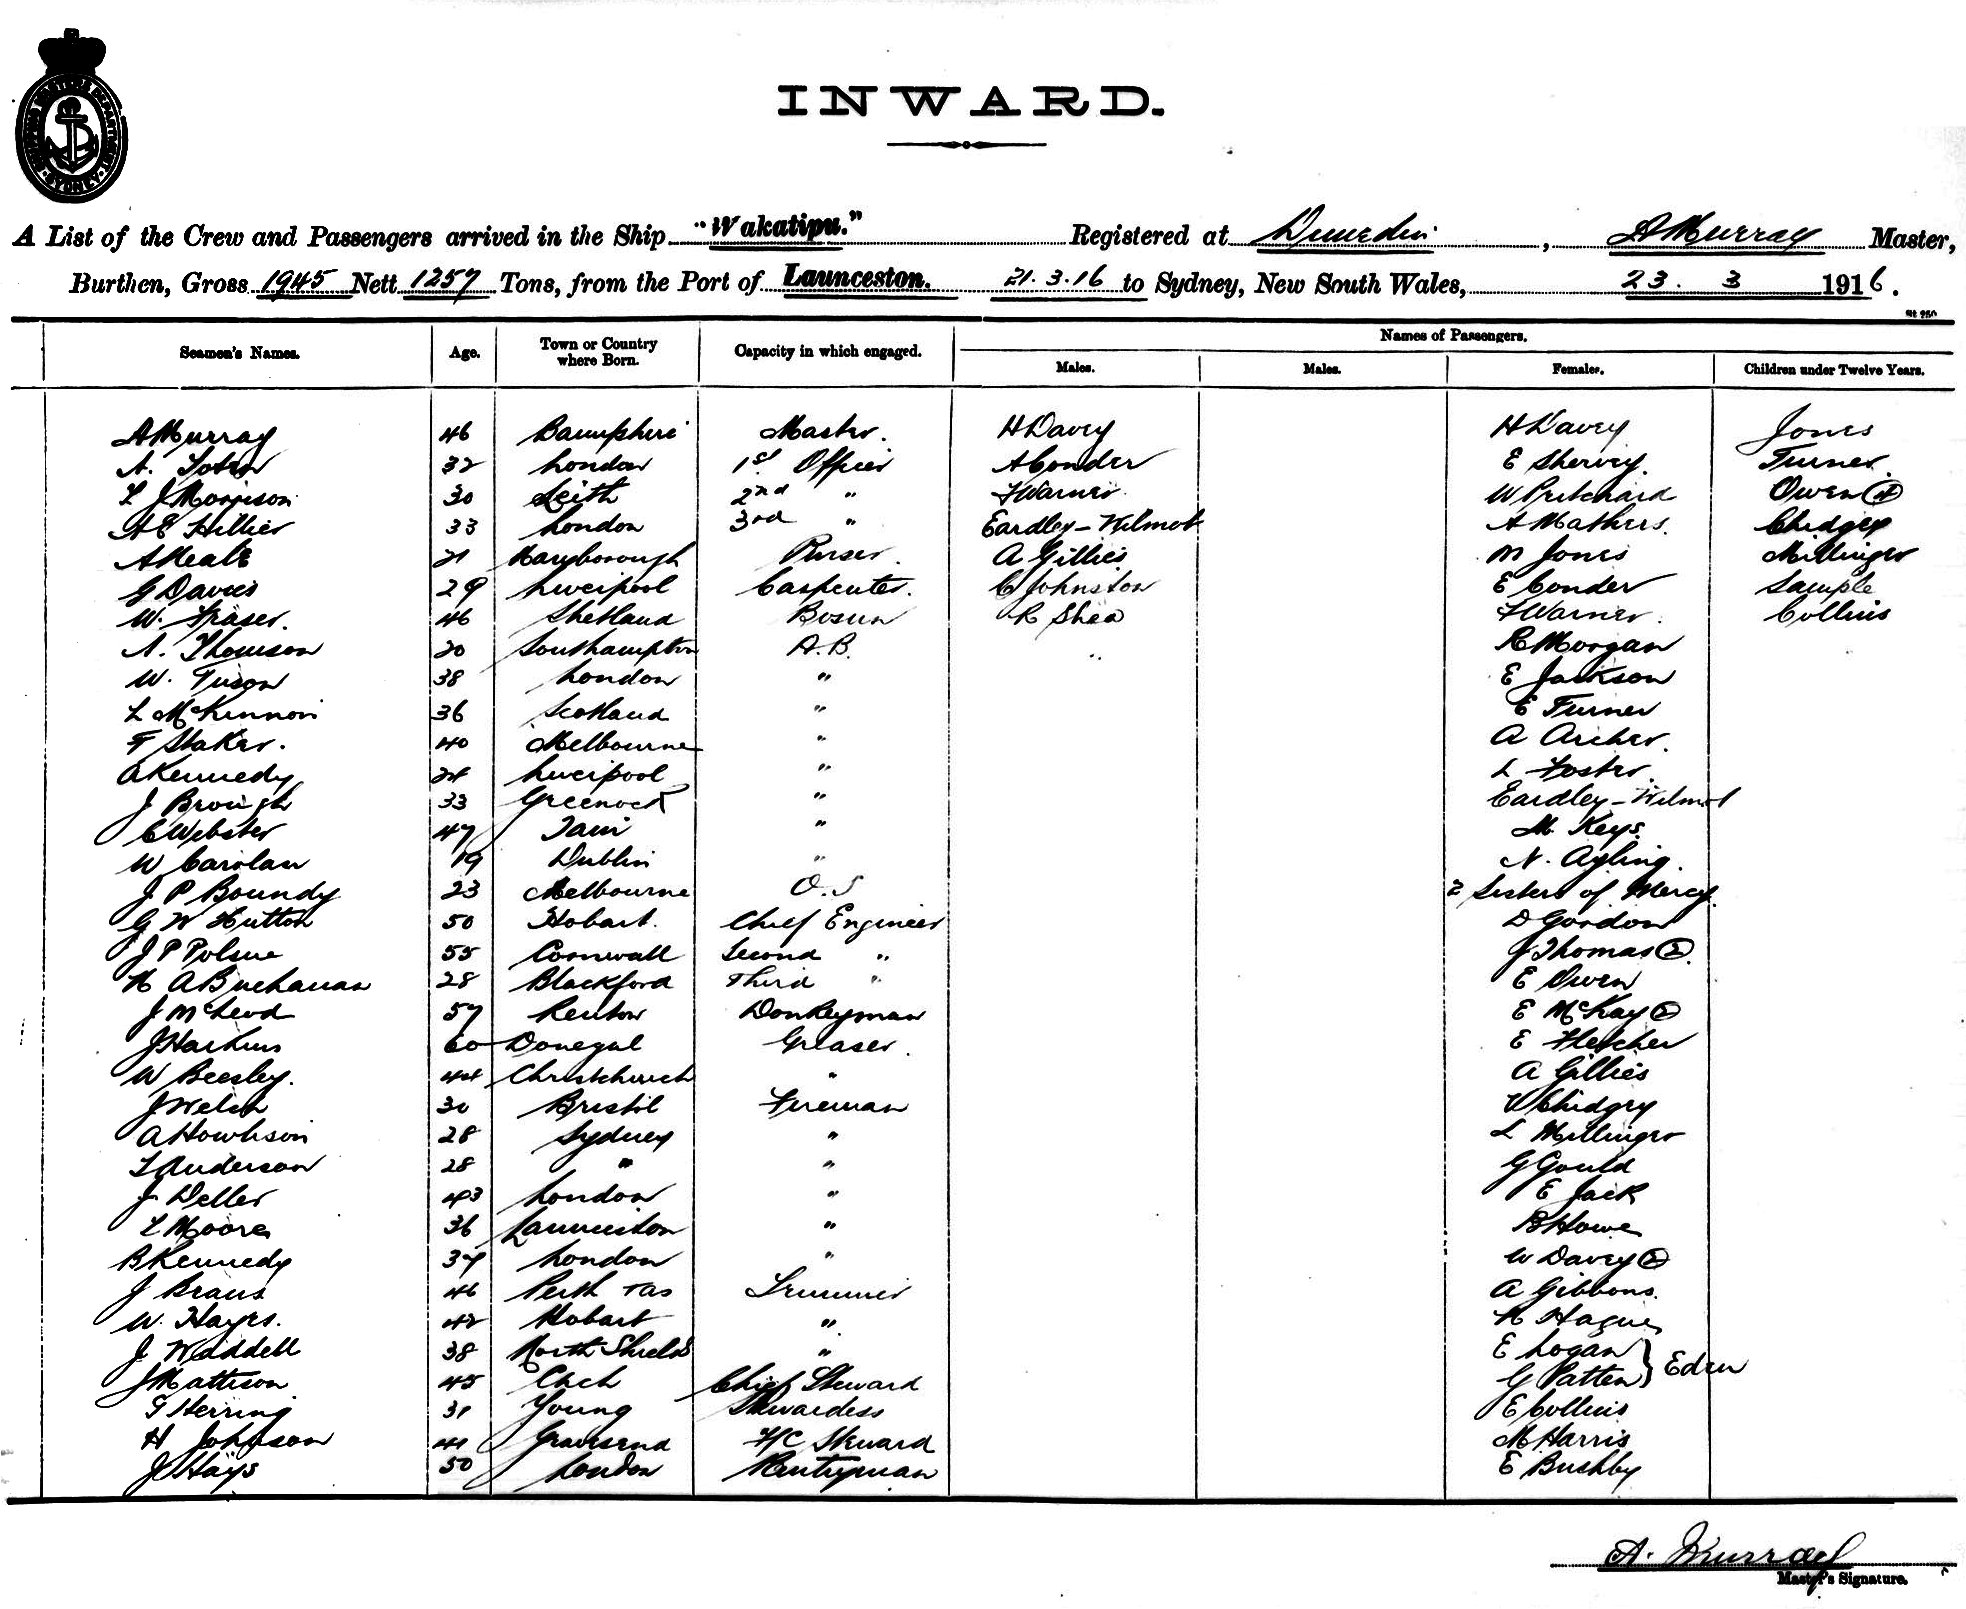 SHIPPING MASTER'S DEPARTMENT
SYDNEY
INWARD.
A List of the Crew and Passengers arrived in the Ship "Wakatipu." Registered at Dunedin, A Murray Master,
Burthen, Gross 1945 Nett 1257 Tons, from the Port of Launceston. 21.3.16 to Sydney, New South Wales, 23. 3 1916.
Names of Passengers.
Seamen's Names. Age. Town or Country where Born. Capacity in which engaged. Males. Males. Females. Children under Twelve Years.
A Murray 46 Master. H Davey H Davey Jones
A. 32 London 1st Officer A Conder E Shervey. Turner.
L J Morrison 30 Leith 2nd " F Warner W Pritchard Owen (4)
A E Hillier 33 London 3rd " Eardley-Wilmot A Mathers. Chidgey
A Neale 21 Maryborough Purser. A Gillies M Jones Millinger
G Davies 29 Liverpool Carpenter. C Johnston E Conder Sample
W. Fraser. 46 Shetland Bosun R Shea F Warner. Collins
A. Thomson 20 Southampton A.B. R Morgan
W. Tuson 38 London " E Jackson
L McKinnon 36 Scotland " E Turner
F Staker. 40 Melbourne " A Archer.
A Kennedy 24 Liverpool " L Foster.
J Brough 33 Greenock " Eardley-Wilmot
C Webster 47 Tain " M. Keys.
W Carolan 19 Dublin " N. Ayling.
J P Boundy 23 Melbourne O.S 2 Sisters of Mercy.
G W Hutton 50 Hobart. Chief Engineer D Gordon
J P Polsue 55 Cornwall Second " J Thomas (2).
H A Buchanan 28 Blackford Third " E Owen
J McLeod 57 Renton Donkeyman E McKay (2)
J Harkins 60 Donegal Greaser. E Fletcher
W Beesley. 44 Christchurch " A Gillies
J Welch 30 Bristol Fireman V Chidgey
A Howieson 28 Sydney " L Millinger
L Anderson 28 " " G Gould
J Deller 43 London " E Jack
L Moore 36 Launceston " B Howe
B Kennedy 37 London " W Davey (2)
J 46 Perth Tas Trimmer A Gibbons.
W. Hayes. 42 Hobart " H Hague
J Waddell 38 North Shields " E Logan } Eden
J Mattison 45 Chief Steward G Patten
F Herring 31 Young Stewardess E Collins
H Johnson 41 Gravesend F/C Steward M Harris
J Hays 50 London Pantryman E Bushby
A. Murray
Master's Signature.